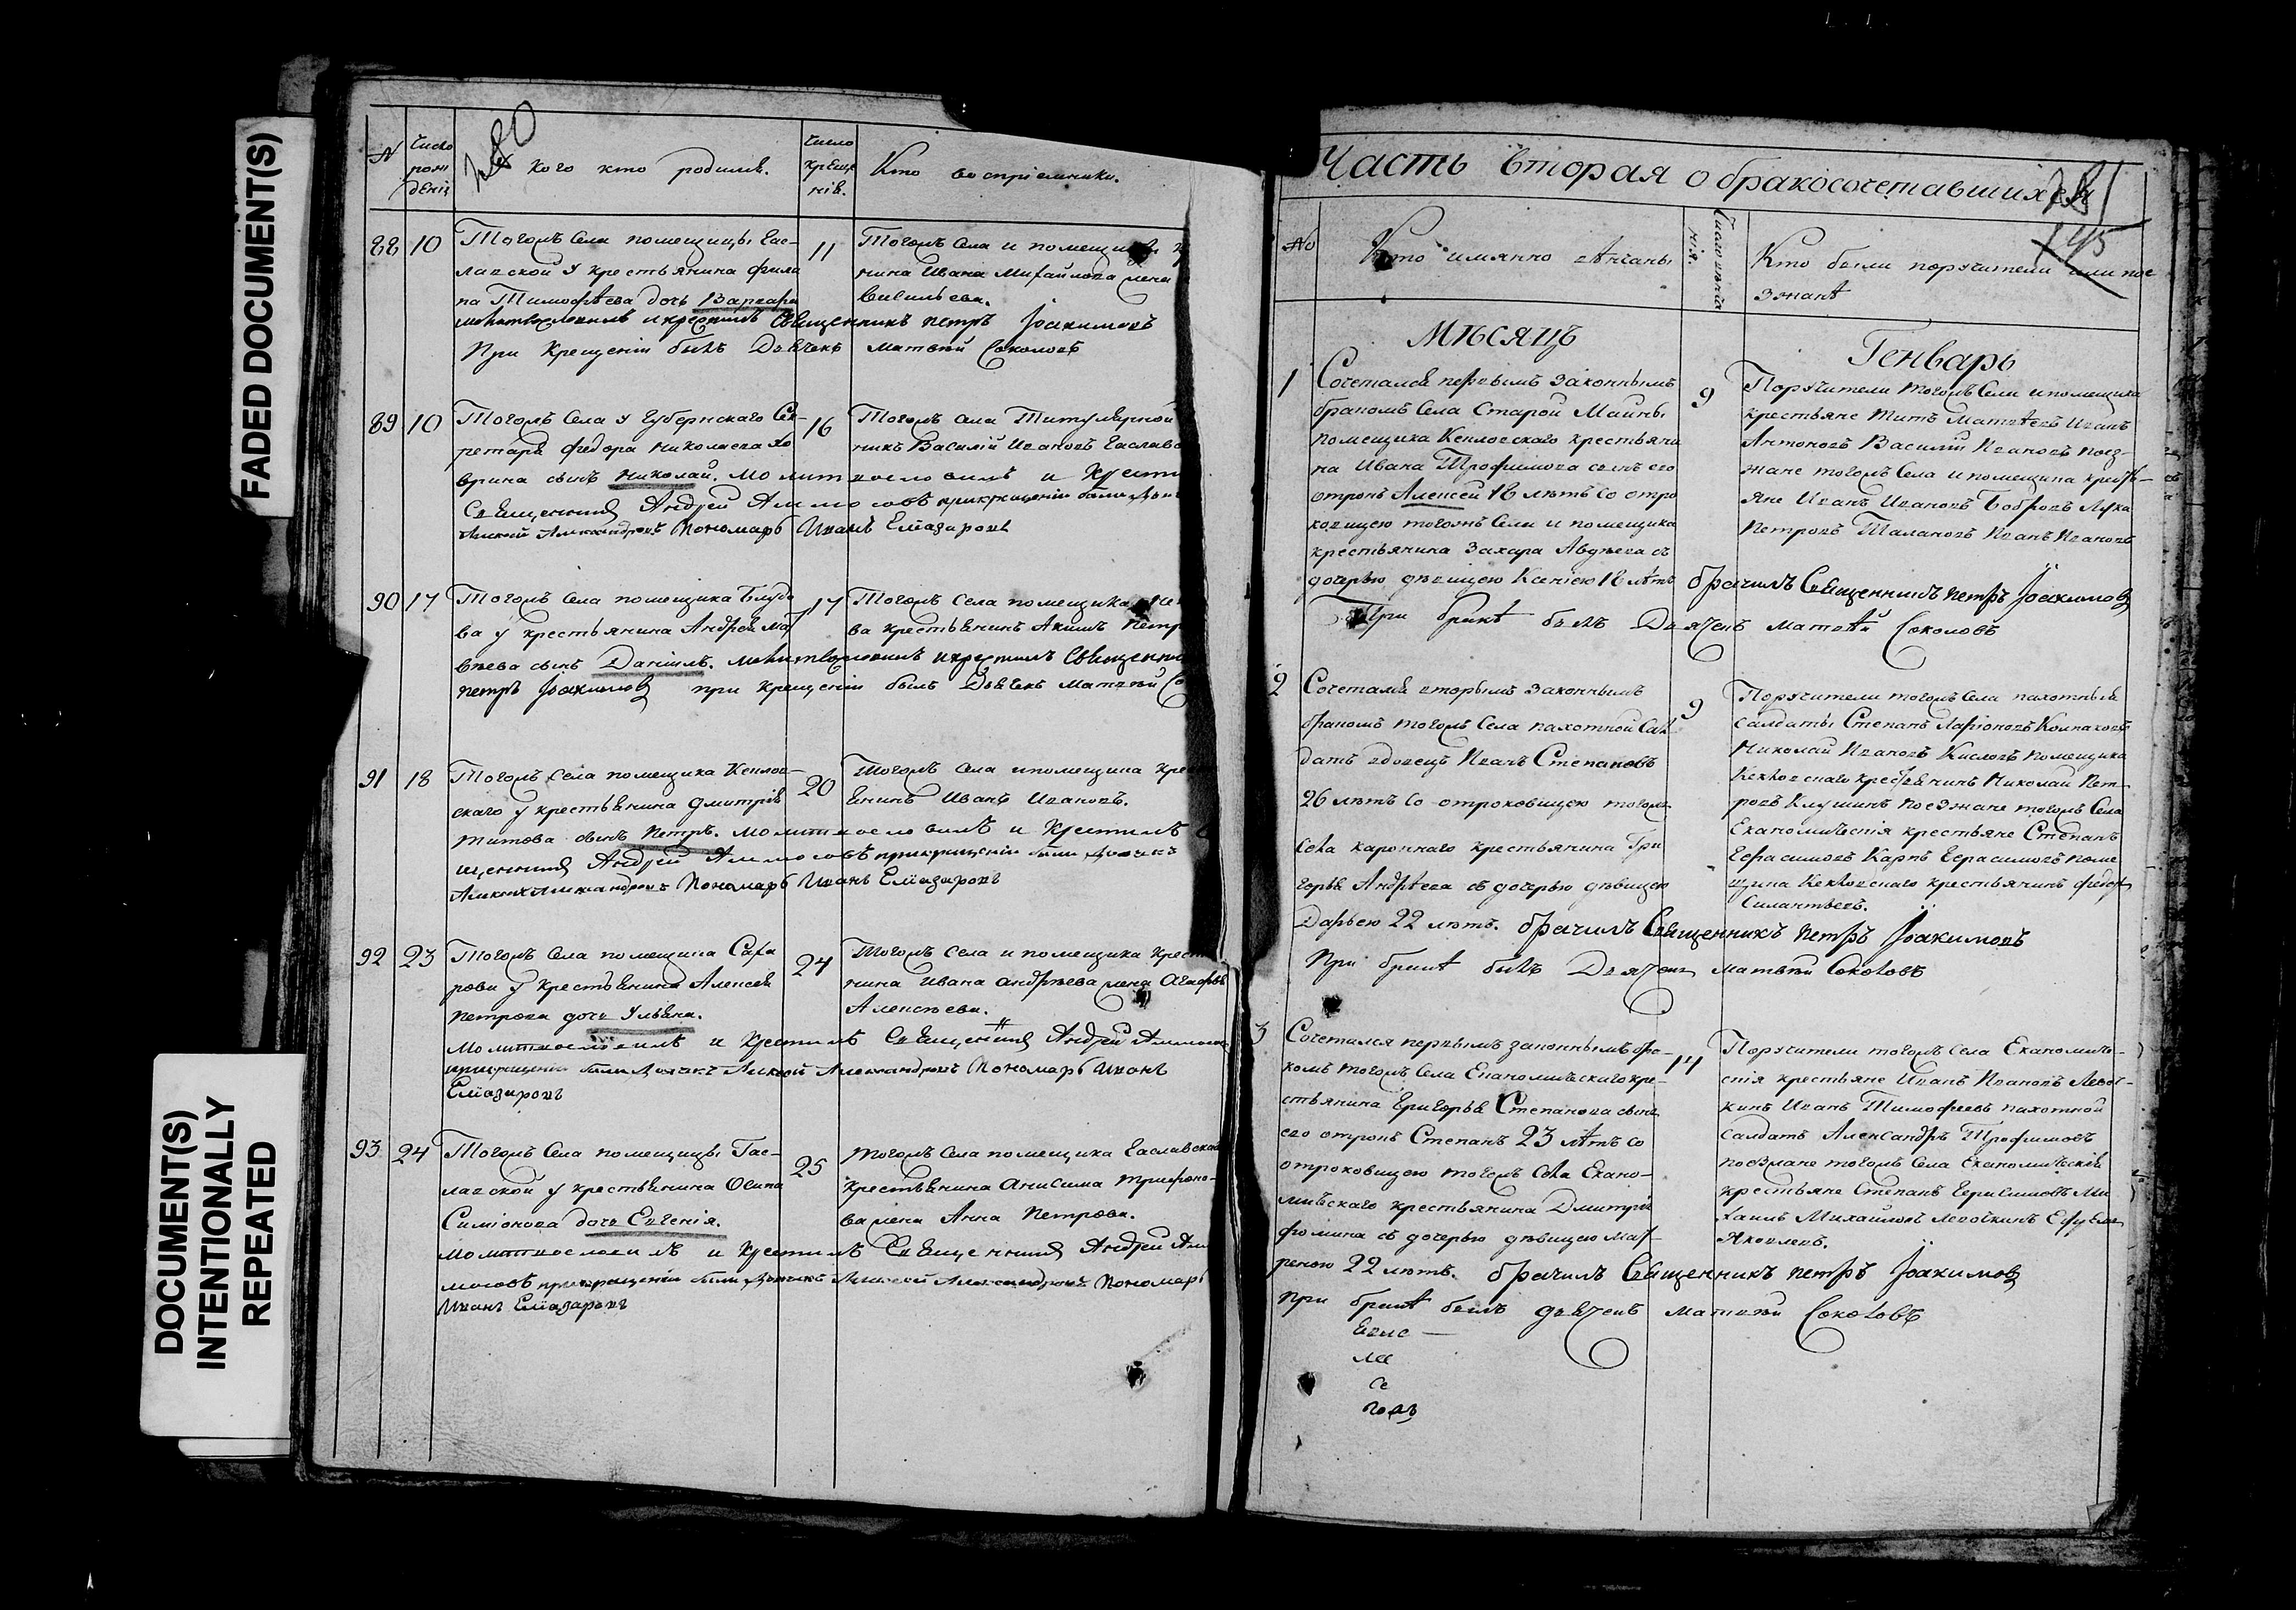 FADED DOCUMENT(S)
DOCUMENT(S)
INTENTIONALLY
REPEATED
№
Число
рож
денія
У кого кто родился.
Число
креще
нія.
Кто восприемники.
88
10
Тогожъ Села помещицы Гас-
лавской у крестьянина Фили
па Тимофѣева дочь Варвара
молитвословилъ и крестилъ Священникъ петръ Іоакимовъ
При крещеніи былъ Дьячекъ Матвѣй Соколовъ
11
Тогожъ Села и помещицы
нина Ивана Михайлова жена
Васильева.
89
10
Тогожъ Села у Губернскаго Сек-
ретаря Федора Николаева
врина сынъ Николай. Молитвословилъ и Крести
Священникъ Андрей прикрещеніи были Дья
Алексей Александровъ Пономарь Иванъ Елiазаровъ
16
Тогожъ Села Титулярной
никъ Василій Ивановъ Гаславс
90
17
Тогожъ Села помещика
ва у крестьянина Андрея Мат
вѣева сынъ Даніилъ. молитвословилъ и крестилъ Священни
петръ Іоакимовъ при крещеніи былъ Дьячекъ Матвѣй Со
17
Тогожъ Села помещика
ва крестьянинъ Акимъ Петр
91
18
Тогожъ Села помещика Кеплов-
скаго у крестьянина Дмитрія
Титова сынъ Петръ. Молитвословилъ и Крестилъ
щенникъ Андрей прикрещеніи были Дьячекъ
Алексей Александровъ Пономарь Иванъ Елiазаровъ
20
Тогожъ Села и помещика кре
янинъ Иванъ Ивановъ.
92
23
Тогожъ Села помещика Саха
рова у крестьянина Алексея
Петрова дочь Ульяна.
Молитвословилъ и Крестилъ Священникъ Андрей
прикрещеніи были Дьячекъ Алексей Александровъ Пономарь Иванъ
Елiазаровъ
24
Тогожъ Села и помещика крест
нина Ивана Андрѣева жена Агафья
Алексѣева.
93
24
Тогожъ Села помещицы Гас-
лавской у крестьянина Осипа
Симіонова дочь Евгенія.
Молитвословилъ и Крестилъ Священникъ Андрей
прикрещеніи были Дьячекъ Алексей Александровъ Пономарь
Иванъ Елiазаровъ
25
Тогожъ Села помещика Гаславской
Крестьянина Анисима Трифоно-
ва жена Анна Петрова.
Часть вторая о бракосочетавшихся
145
№
Кто имянно вѣнчаны
Кто были поручители или пое
зжанѣ
МѢСЯЦЪ
Генварь
1
Сочетался первымъ законнымъ
бракомъ Села Старой Маины
помещика Кепловскаго крестьяни
на Ивана Трофимова сынъ его
отрокъ Алексей 18 лѣтъ со отро
ковицею тогожъ Села и помещика
крестьянина Захара Авдѣева съ
дочерью дѣвицею Ксеніею 18 лѣтъ
9
Поручители тогожъ Села и помещика
крестьяне Титъ Матвѣевъ Иванъ
Антоновъ Василій Ивановъ поез-
жане тогожъ Села и помещика кресть-
яне Иванъ Ивановъ Бобровъ Лука
Петровъ Шалановъ Иванъ Ивановъ
брачилъ Священникъ петръ Іоакимовъ
При бракѣ былъ Дьячекъ Матвѣй Соколовъ
2
Сочетался вторымъ законнымъ
бракомъ тогожъ Села пахотной Сал
датъ вдовецъ Иванъ Степановъ
26 лѣтъ со отроковицею тогожъ
Села кароннаго крестьянина Гри
горья Андрѣева съ дочерью дѣвицею
Дарьею 22 лѣтъ. брачилъ Священникъ петръ Іоакимовъ
При бракѣ былъ Дьячекъ Матвѣй Соколовъ
9
Поручители тогожъ Села пахотныя
салдаты Степанъ Ларіоновъ Колпаковъ
Николай Ивановъ Кисловъ помещика
Кепловскаго крестьянинъ Николай Пет-
ровъ Клушинъ поезжане тогожъ Села
Економическія крестьяне Степанъ
Герасимовъ Карпъ Герасимовъ поме
щика Кепловскаго крестьянинъ Федоръ
Силантьевъ.
3
Сочетался первымъ законнымъ бра-
комъ тогожъ Села Економическаго кре-
стьянина Григорья Степанова сынъ
его отрокъ Степанъ 23 лѣтъ со
отроковицею тогожъ Села Еконо-
мическаго крестьянина Дмитрія
Фомина съ дочерью дѣвицею Мат
реною 22 лѣтъ. брачилъ Священникъ петръ Іоакимовъ
При бракѣ былъ дьячекъ Матвѣй Соколовъ
14
Поручители тогожъ Села Економиче-
скія крестьяне Иванъ Ивановъ Левоч-
кинъ Иванъ Тимофеевъ пахотной
Салдатъ Александръ Трофимовъ
поезжане тогожъ Села Економическія
крестьяне Степанъ Герасимовъ Ми
хаилъ Михайловъ Левочкинъ
Яковлевъ.